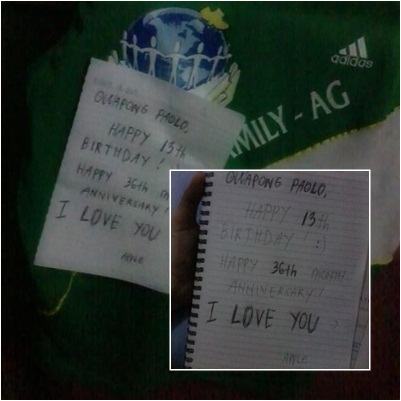 adidas
AMILY - AG
GUAPONG PAOLO,
HAPPY 13th
BIRTHDAY !
HAPPY 36th
ANNIVERSARY!
I LOVE YOU
GUAPONG PAOLO,
HAPPY 13th
BIRTHDAY ! :)
HAPPY 36th MONTH
ANNIVERSARY!
I LOVE YOU